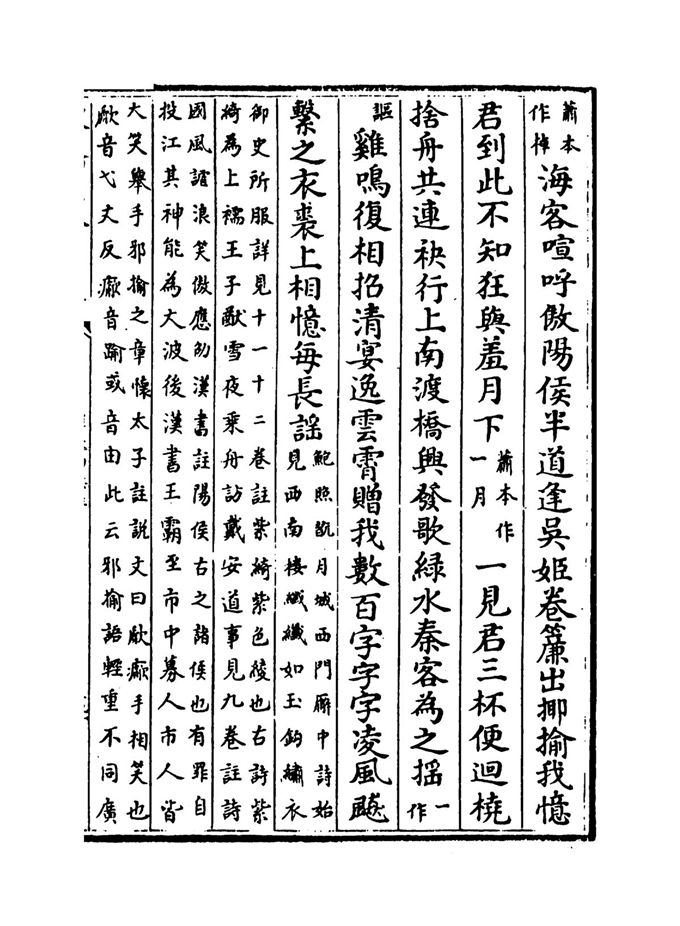 蕭本
作棹
海客喧呼傲陽侯半道逢吳姬卷簾出揶揄我憶
君到此不知狂與羞月下
蕭本作
一月
一見君三杯便迴橈
捨舟共連袂行上南渡橋興發歌綠水秦客為之搖
一作
謳
雞鳴復相招清宴逸雲霄贈我數百字字字凌風飈
繫之衣裘上相憶每長謠
鮑照翫月城西門廨中詩始
見西南樓纖纖如玉鈎繡衣
御史所服詳見十一十二卷註紫綺紫色綾也古詩紫
綺為上襦王子猷雪夜乘舟訪戴安道事見九卷註詩
國風謔浪笑傲應劭漢書註陽侯古之諸侯也有罪自
投江其神能為大波後漢書王霸至市中募人市人皆
大笑舉手邪揄之章懷太子註說文曰歋歈手相笑也
歋音弋支反歈音踰或音由此云邪揄語輕重不同廣